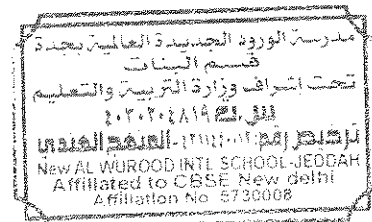 مدرسة الورود الجديدة العالمية بجدة
قسم البنات
تحت اشراف وزارة التربية والتعليم
٤٠٣٠٢٠٤٨١٩
ترخيص رقم: المنهج الهندي
New AL WUROOD INTL SCHOOL-JEDDAH
Affiliated to CBSE New delhi
Affiliation No 5730008